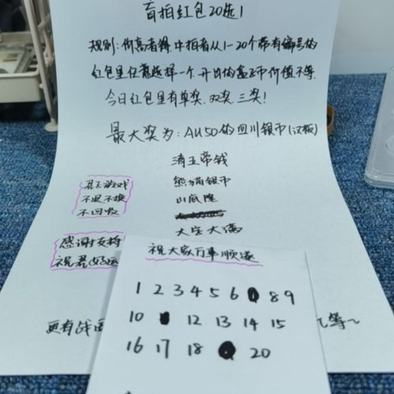 盲拍红包20选1
规则:价高者得,中拍者从1-20个带有编号的
红包里任意选择一个,开出的盒子币价值不等
今日红包里有单奖.双奖.三奖!
最大奖为:AU50的四川银币(汉板)
清五帝钱
熊猫银币
川底隆
大宝大满
盲盒游戏
不退不换
不回收
感谢支持
祝君好运
祝大家万事顺遂
1 2 3 4 5 6 8 9
10 12 13 14 15
16 17 18 20
更有战国
等~